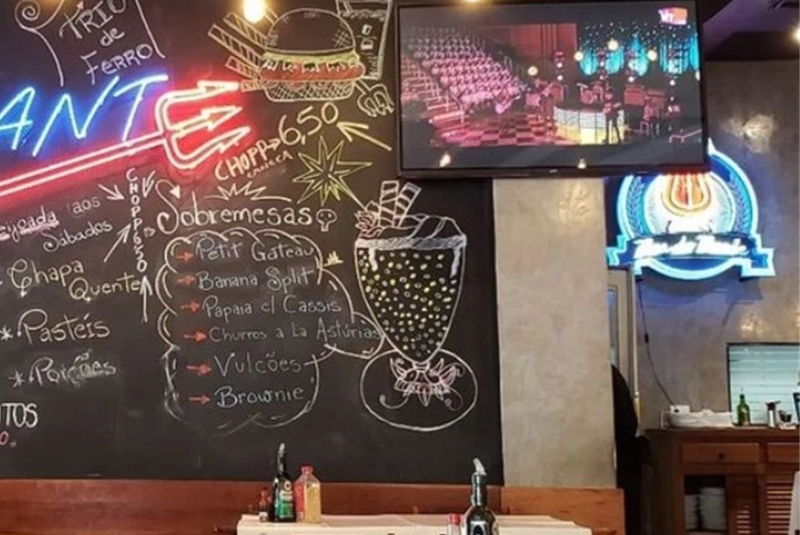 TRIO
de
FERRO
ANT
CHOPP 6,50
CARIOCA
CHOPP 6,50
aos
Sábados
Chapa
Quente
* Pastéis
* Porções
Sobremesas
Petit Gateau
Banana Split
Papaia c/ Cassis
Churros a La Astúrias
Vulcões
Brownie